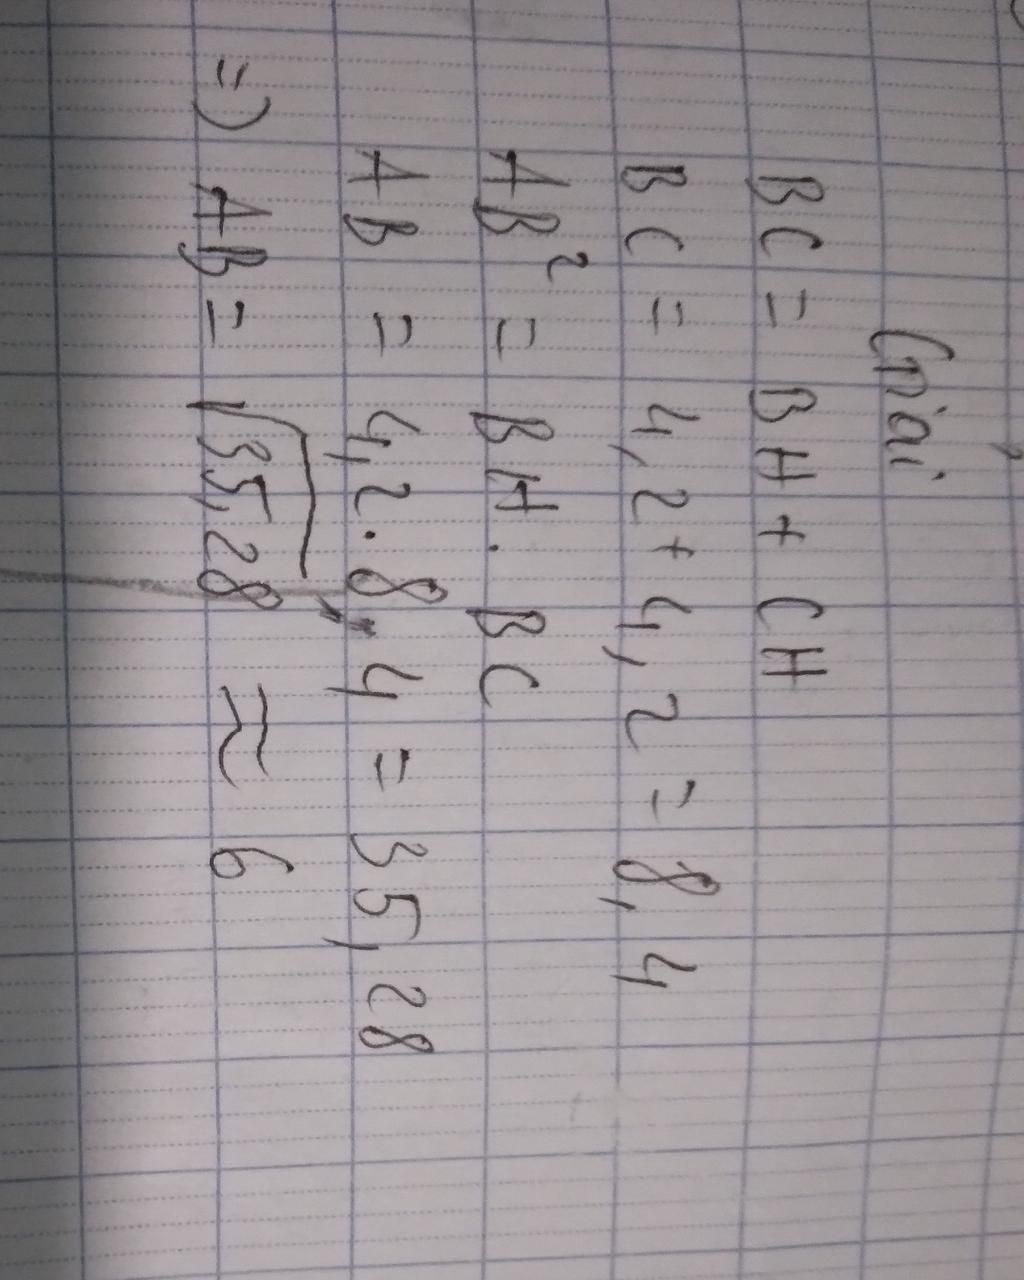 Giải
BC = BH + CH
BC = 4,2 + 4,2 = 8,4
AB² = BH . BC
AB = 4,2 . 8,4 = 35,28
=) AB = √35,28 ≈ 6